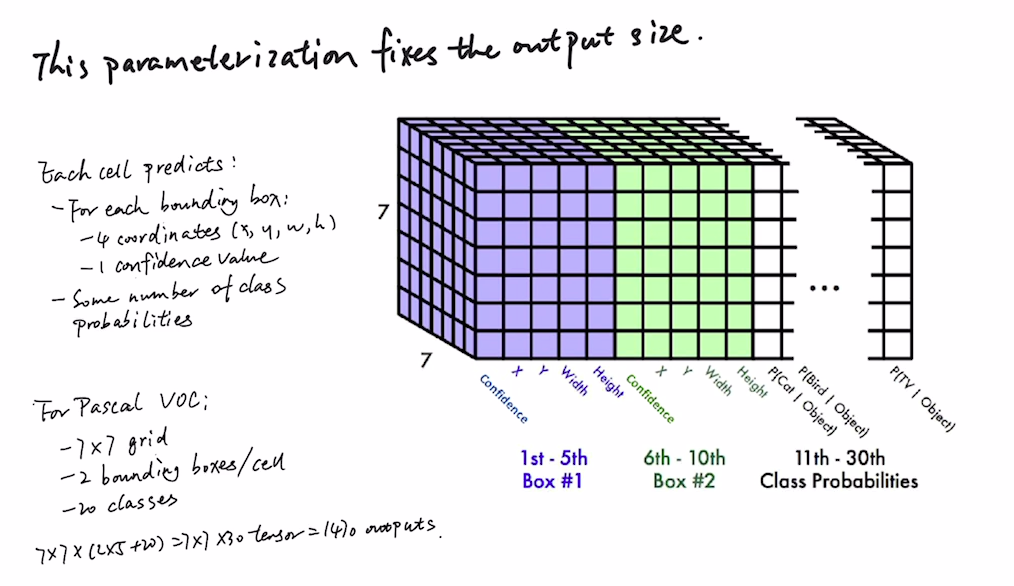 This parameterization fixes the output size.
Each cell predicts:
- For each bounding box:
- 4 coordinates (x, y, w, h)
- 1 confidence value
- Some number of class
probabilities
For Pascal VOC:
- 7 x 7 grid
- 2 bounding boxes/cell
- 20 classes
7 x 7 x (2x5 + 20) = 7x7 x30 tensor = 1470 outputs.
7
7
...
Confidence
X
Y
Width
Height
Confidence
X
Y
Width
Height
P(Cat | Object)
P(Bird | Object)
P(TV | Object)
1st - 5th
Box #1
6th - 10th
Box #2
11th - 30th
Class Probabilities